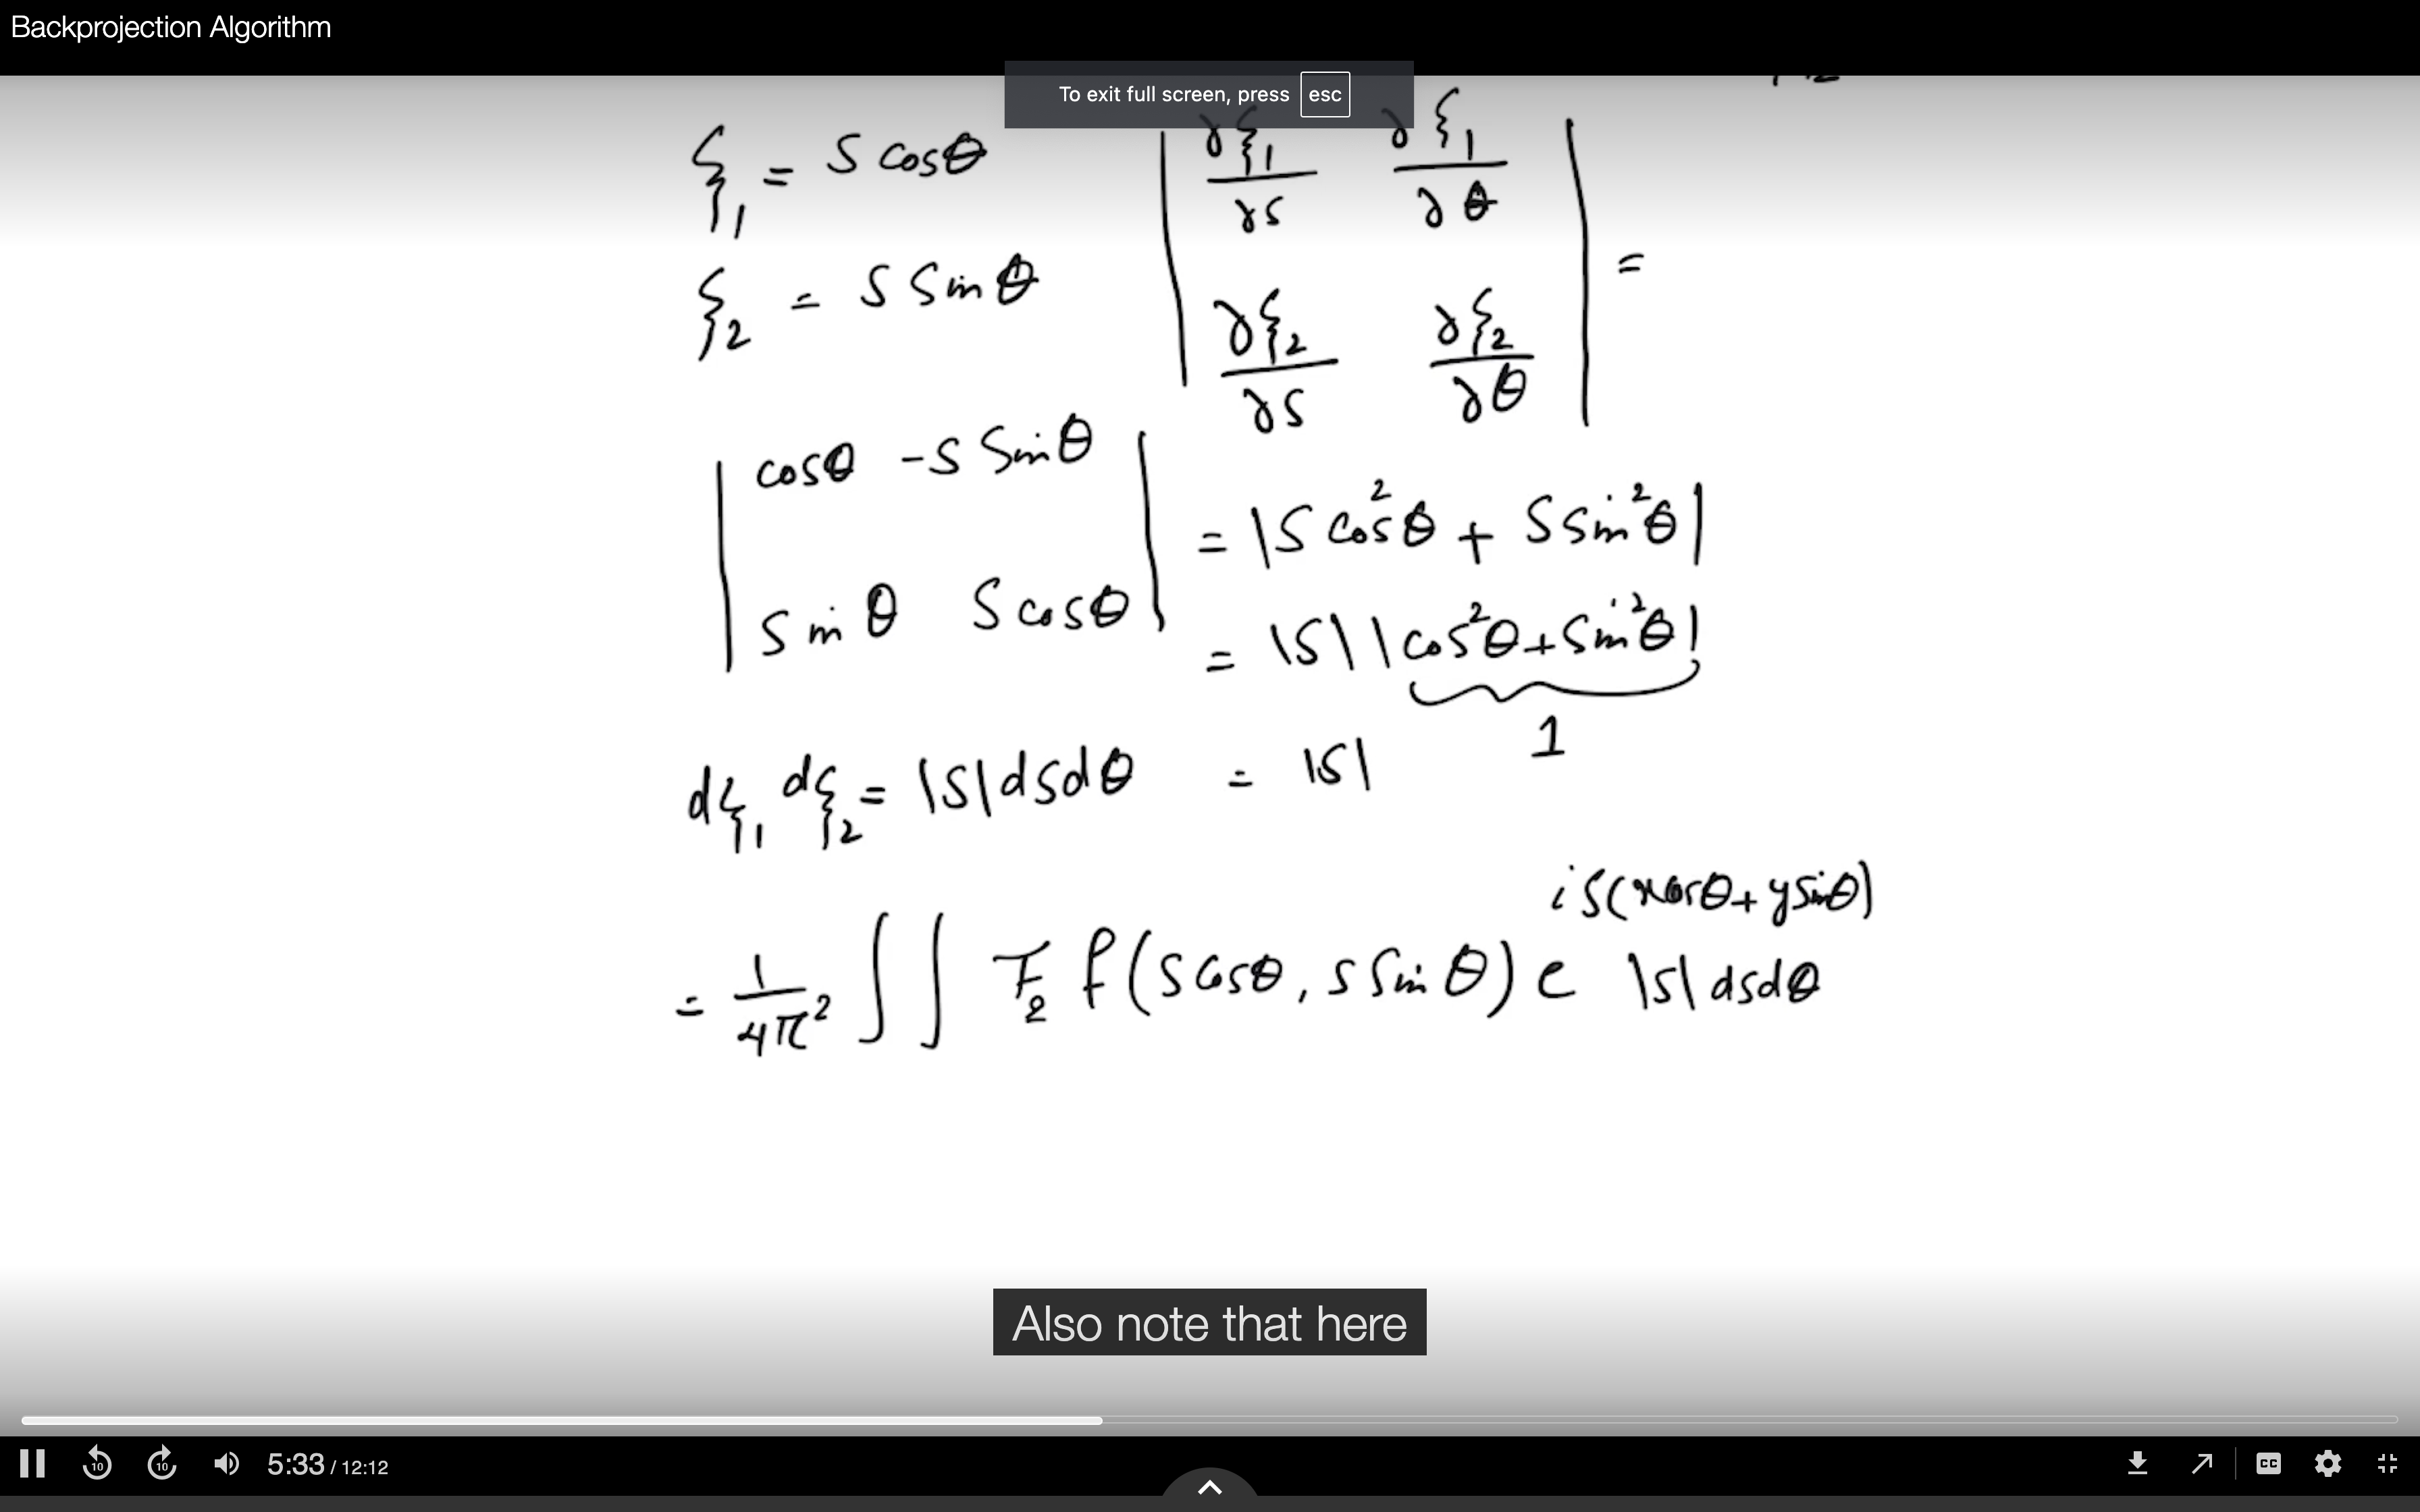 Backprojection Algorithm
To exit full screen, press esc
ξ₁ = S cosθ
ξ₂ = S Sinθ
| ∂ξ₁/∂S ∂ξ₁/∂θ |
| ∂ξ₂/∂S ∂ξ₂/∂θ | =
| cosθ -S Sinθ |
| Sinθ S cosθ |
= |S cos²θ + S sin²θ|
= |S| |cos²θ + Sin²θ|
1
dξ₁ dξ₂ = |S| dS dθ = |S|
= 1/4π² ∫∫ F₂ f(S cosθ, S Sinθ) e^{iS(x cosθ + y Sinθ)} |S| dS dθ
Also note that here
10 10 5:33 / 12:12 CC